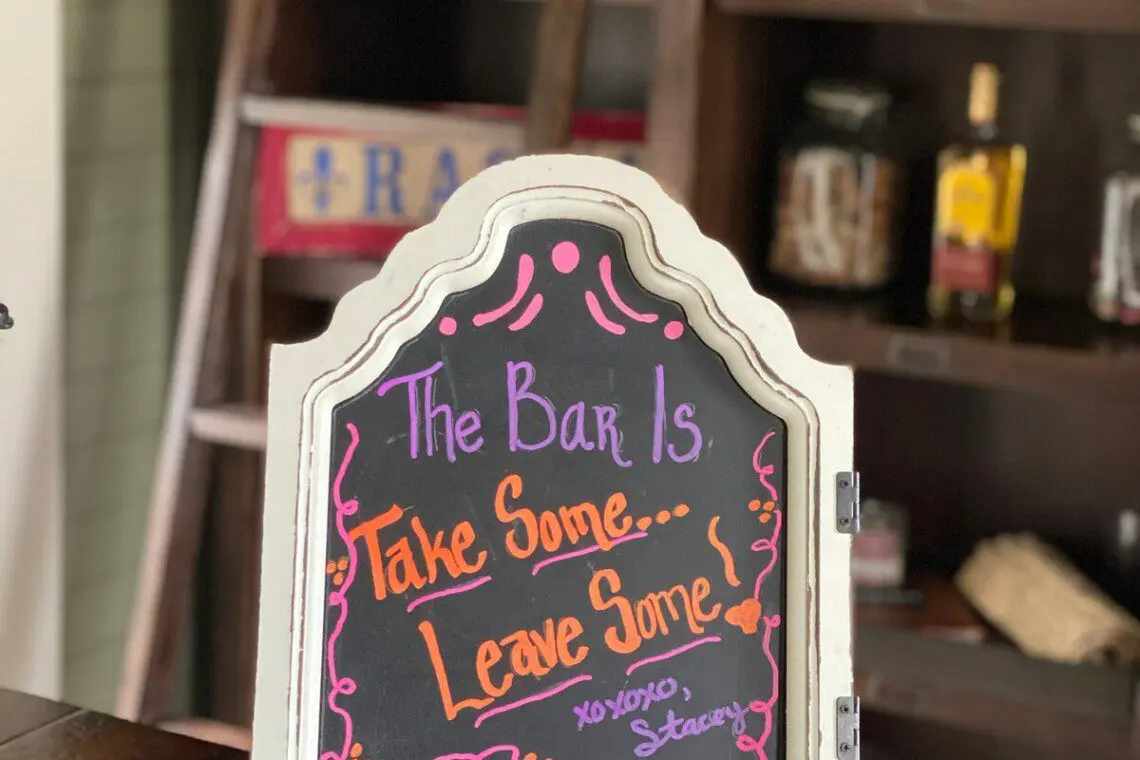 The Bar Is
Take Some...
Leave Some!
xoxoxo,
Stacey